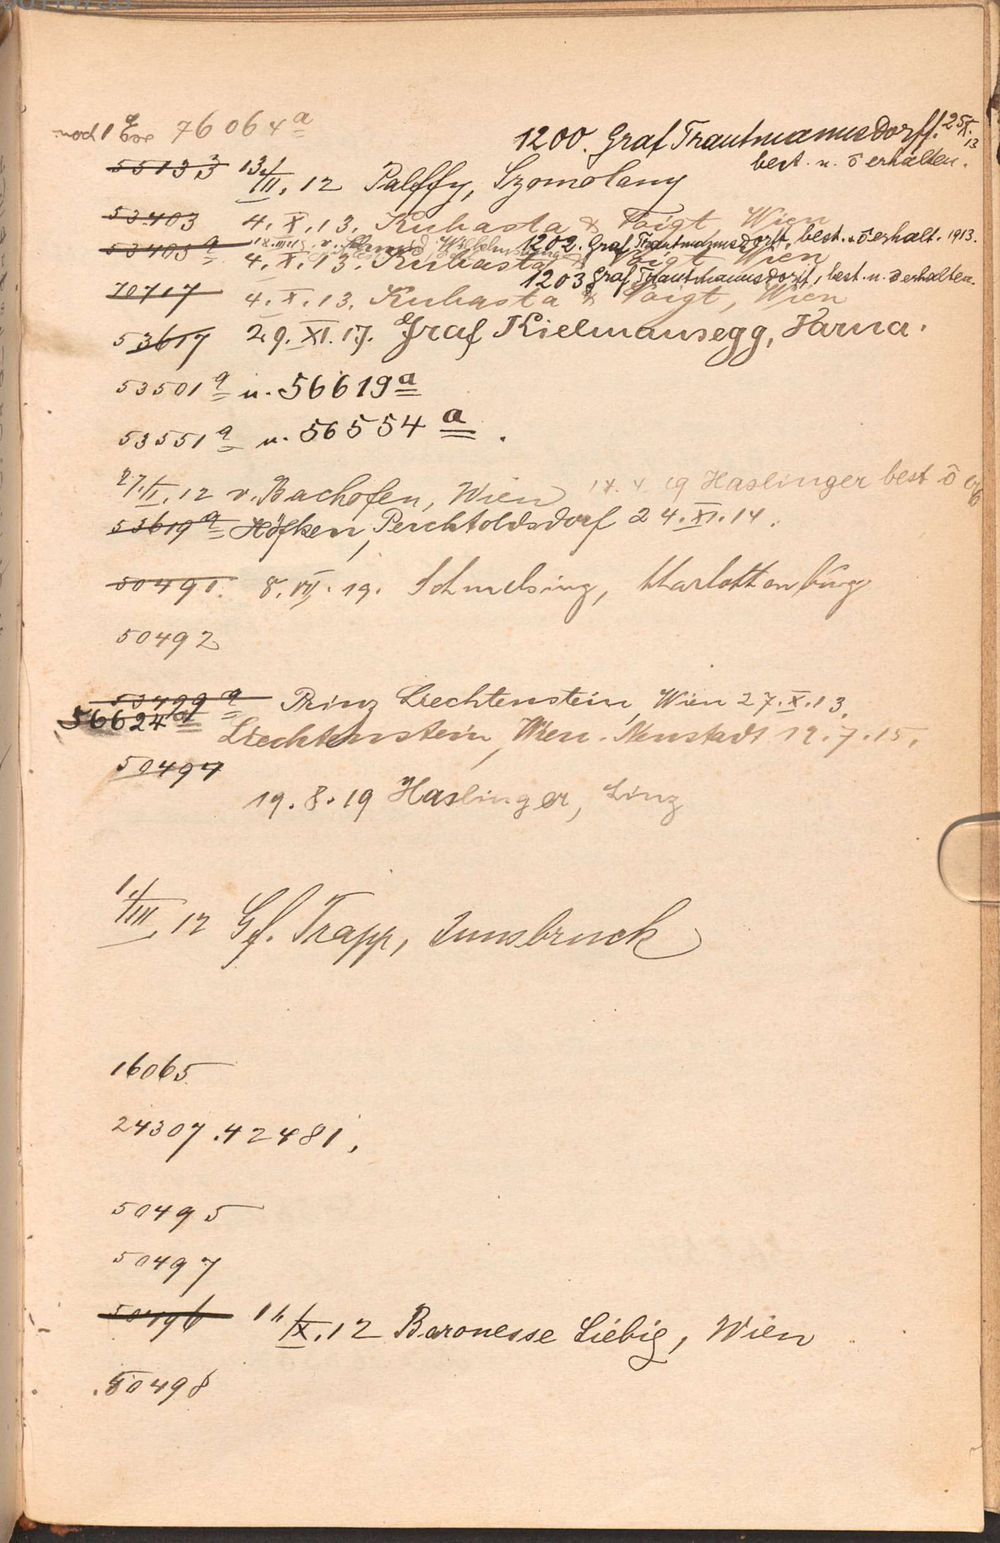 noch 1 Ex 76064a
1200. Graf Trautmannsdorff. 25/X. 13
best. u. ō erhalten.
55133 13/III. 12 Palffy, Szomolany
53403 4. X. 13. Kubasta & Voigt Wien
1202. Graf Trautmannsdorff, best. u. ō erhalt. 1913.
53403a 4. X. 13. Kubasta & Voigt Wien
1203 Graf Trautmannsdorff, best. u. ō erhalten.
70717 4. X. 13. Kubasta & Voigt, Wien
53617 29. XI. 17. Graf Kielmansegg, Varna.
53501a u. 56619a
53551a u. 56554a.
27/I. 12 v. Bachofen, Wien 19 Haslinger best ō
53619a Höfken, Perchtoldsdorf 24. XI. 14.
50491. 8. VII. 19. Schmelsing, Charlottenburg
50492
53499a Prinz Liechtenstein, Wien 27. X. 13.
56624a Liechtenstein, Wien. Neustadt 19. 7. 15.
50494
19. 8. 19 Haslinger, Linz
1/III. 12 Gf. Trapp, Innsbruck
16065
24307. 42481,
50495
50497
50496 14/IX. 12 Baronesse Liebig, Wien
50498